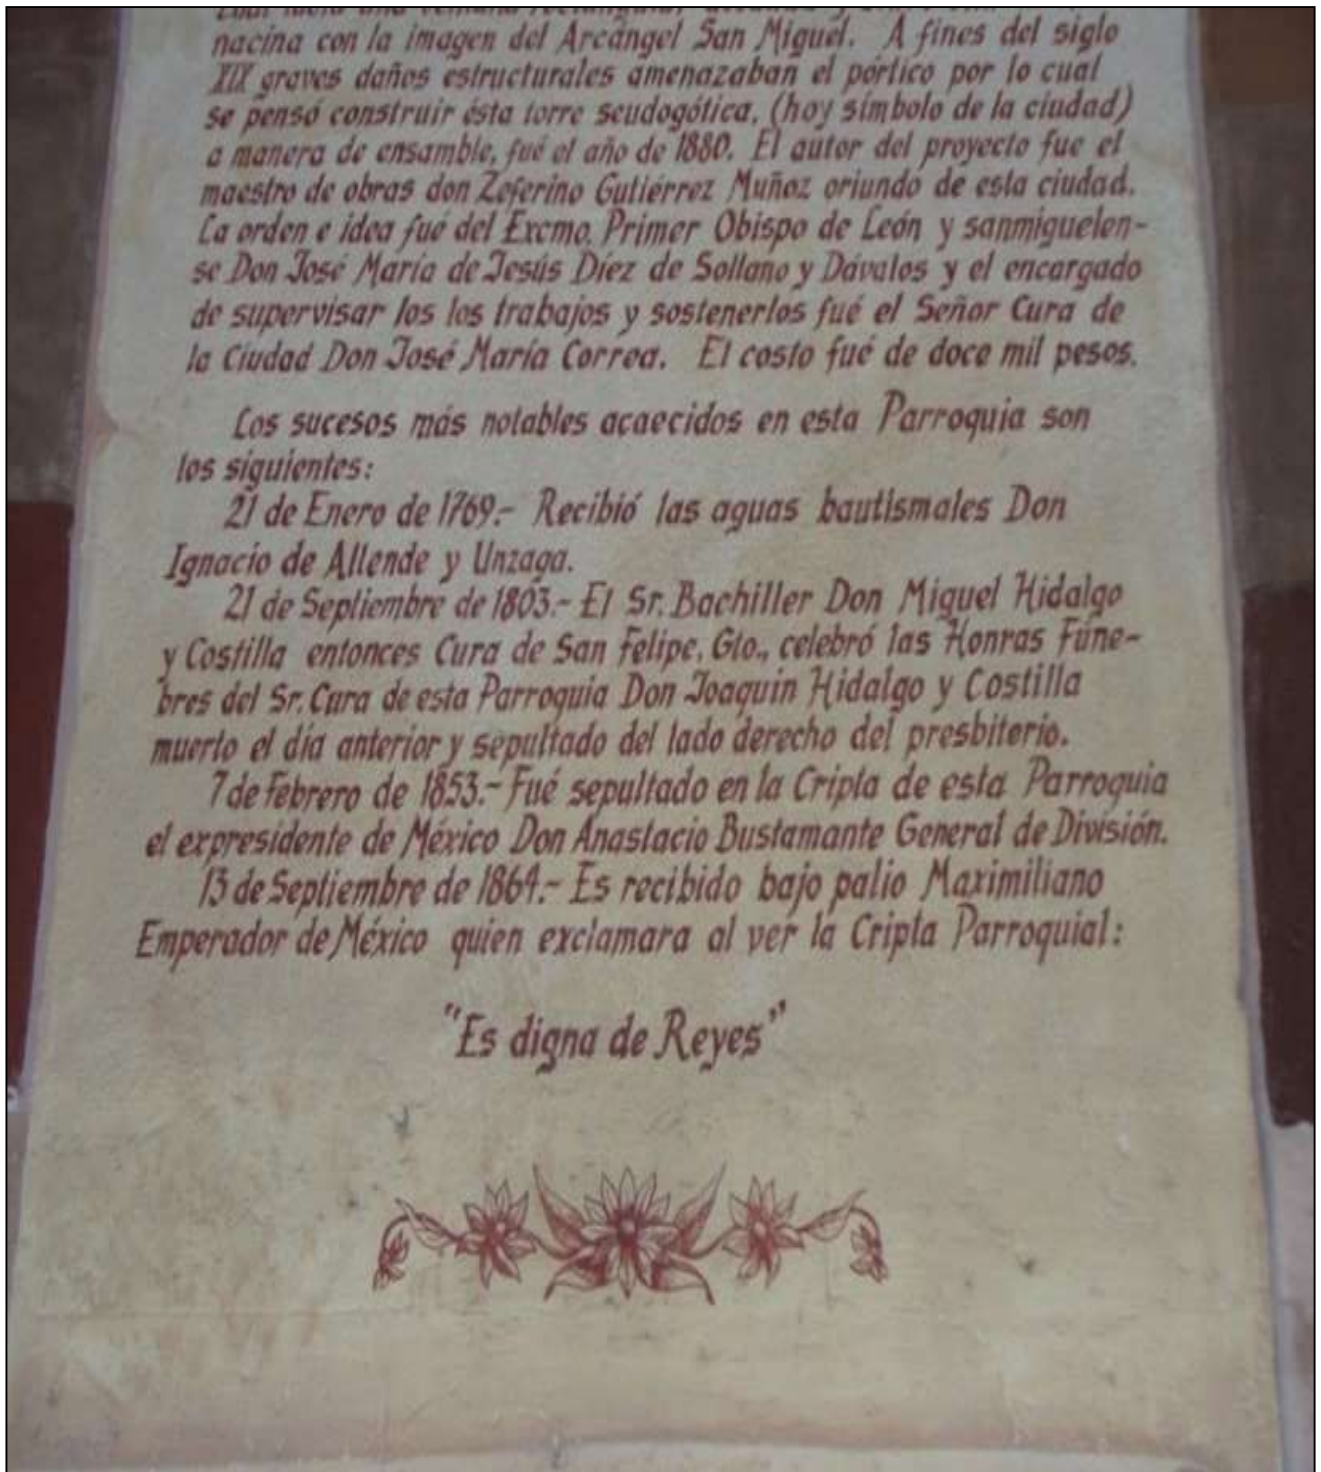 nacina con la imagen del Arcángel San Miguel. A fines del siglo
XIX graves daños estructurales amenazaban el pórtico por lo cual
se pensó construir ésta torre seudogótica, (hoy símbolo de la ciudad)
a manera de ensamble, fué el año de 1880. El autor del proyecto fue el
maestro de obras don Zeferino Gutiérrez Muñoz oriundo de esta ciudad.
La orden e idea fué del Excmo. Primer Obispo de León y sanmiguelen-
se Don José María de Jesús Díez de Sollano y Dávalos y el encargado
de supervisar los los trabajos y sostenerlos fué el Señor Cura de
la Ciudad Don José María Correa. El costo fué de doce mil pesos.
Los sucesos más notables acaecidos en esta Parroquia son
los siguientes:
21 de Enero de 1769.- Recibió las aguas bautismales Don
Ignacio de Allende y Unzaga.
21 de Septiembre de 1803.- El Sr. Bachiller Don Miguel Hidalgo
y Costilla entonces Cura de San Felipe, Gto., celebró las Honras Fúne-
bres del Sr. Cura de esta Parroquia Don Joaquin Hidalgo y Costilla
muerto el día anterior y sepultado del lado derecho del presbiterio.
7 de Febrero de 1853.- Fué sepultado en la Cripta de esta Parroquia
el expresidente de México Don Anastacio Bustamante General de División.
13 de Septiembre de 1864.- Es recibido bajo palio Maximiliano
Emperador de México quien exclamara al ver la Cripta Parroquial:
"Es digna de Reyes"